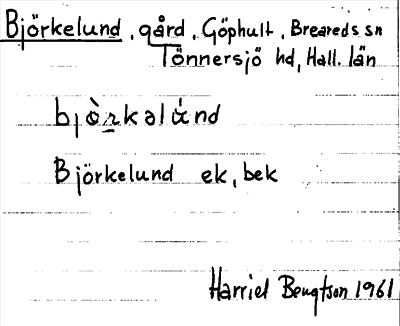 Björkelund, gård, Göphult, Breareds sn
Tönnersjö hd, Hall. län
bjò̤rkəlánd
Björkelund ek, bek
Harriet Bengtson 1961